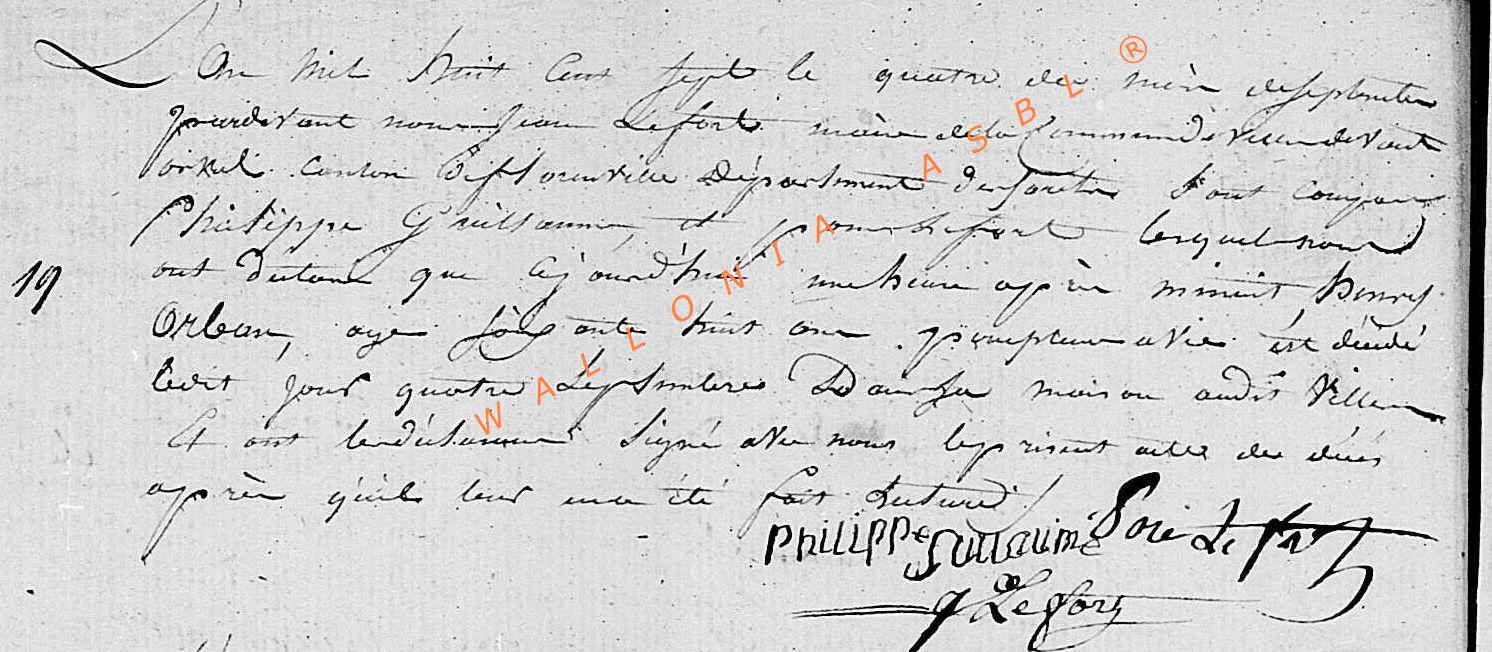 L'An mil huit cent sept le quatre du mois de septembre
pardevant nous Jean Lefort maire de la Commune de villers devant
orval canton d'Etf florenville Département des forêts sont comparu
Philippe Guillaume et Lefort lesquels nous
ont declaré que ajourd'hui une heure après minuit henry
Orban, age soixante huit ans est décédé
ledit jour quatre septembre Dans sa maison audit Villers
Et ont les déclarants Signé avec nous le present acte de décés
après qu'il leur en a été fait Lecture
19
Philippe Guillaume Le fort
J Lefort
WALLONIA ASBL ®